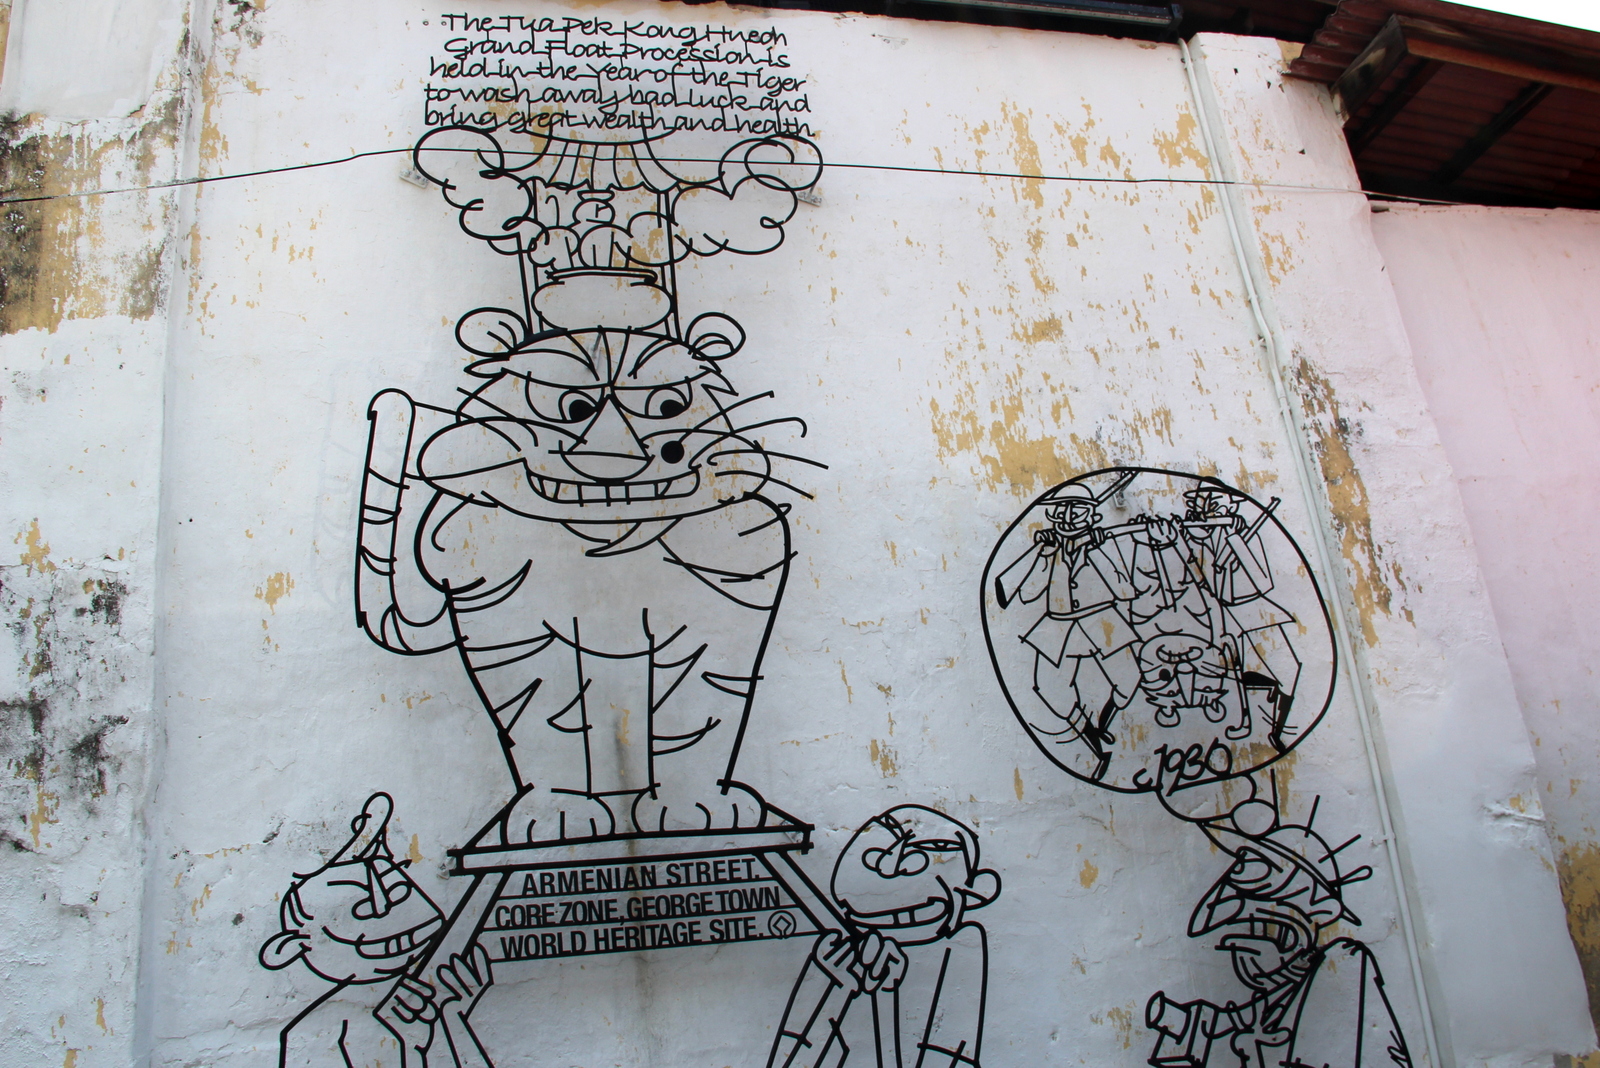 The Tua Pek Kong Hneoh
Grand Float Procession is
held in the Year of the Tiger
to wash away bad luck and
bring great wealth and health
c.1930
ARMENIAN STREET.
CORE ZONE, GEORGE TOWN
WORLD HERITAGE SITE.